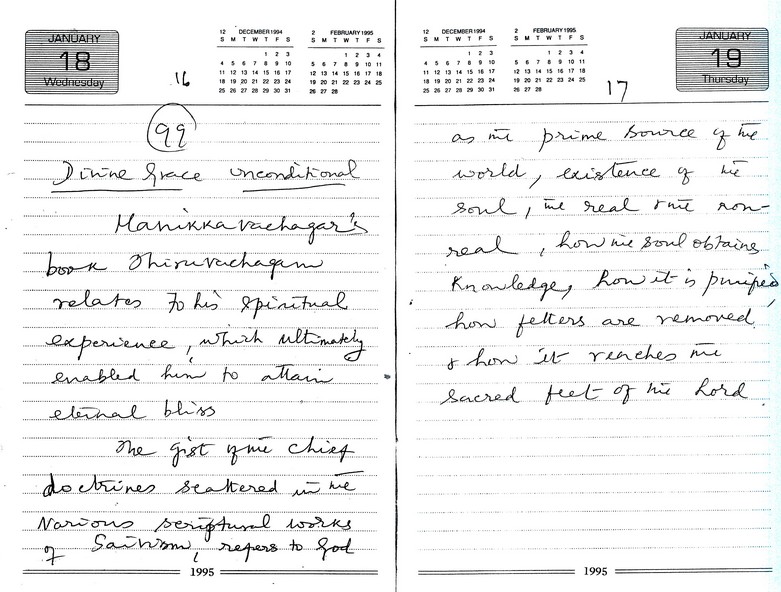 JANUARY
18
Wednesday
12 DECEMBER 1994
S M T W T F S
1 2 3
4 5 6 7 8 9 10
11 12 13 14 15 16 17
18 19 20 21 22 23 24
25 26 27 28 29 30 31
2 FEBRUARY 1995
S M T W T F S
1 2 3 4
5 6 7 8 9 10 11
12 13 14 15 16 17 18
19 20 21 22 23 24 25
26 27 28
16
99
Divine Grace unconditional
Manikkavachagar's
book Thiruvachagam
relates to his spiritual
experience, which ultimately
enabled him to attain
eternal bliss
The gist of the chief
doctrines scattered in the
various scriptural works
of Saivism, refers to God
1995
12 DECEMBER 1994
S M T W T F S
1 2 3
4 5 6 7 8 9 10
11 12 13 14 15 16 17
18 19 20 21 22 23 24
25 26 27 28 29 30 31
2 FEBRUARY 1995
S M T W T F S
1 2 3 4
5 6 7 8 9 10 11
12 13 14 15 16 17 18
19 20 21 22 23 24 25
26 27 28
17
JANUARY
19
Thursday
as the prime source of the
world, existence of the
soul, the real & the non-
real, how the soul obtains
knowledge, how it is purified,
how fetters are removed
& how it reaches the
sacred feet of the Lord
1995